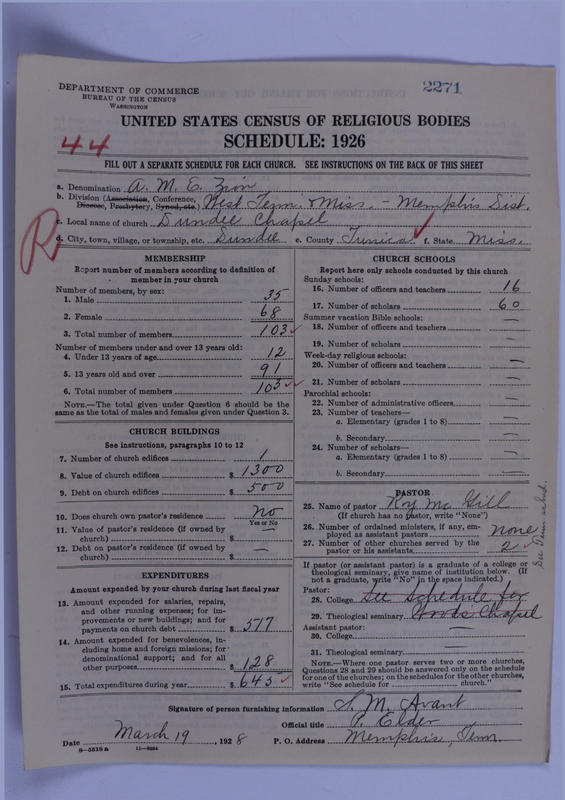 DEPARTMENT OF COMMERCE
BUREAU OF THE CENSUS
WASHINGTON
2271
UNITED STATES CENSUS OF RELIGIOUS BODIES
44
SCHEDULE: 1926
FILL OUT A SEPARATE SCHEDULE FOR EACH CHURCH. SEE INSTRUCTIONS ON THE BACK OF THIS SHEET
a. Denomination A. M. E. Zion
b. Division (Association, Conference, Diocese, Presbytery, Synod, etc.) West Tenn. & Miss. - Memphis Dist.
c. Local name of church Dundee Chapel
R
d. City, town, village, or township, etc. Dundee e. County Tunica f. State Miss.
MEMBERSHIP
Report number of members according to definition of
member in your church
Number of members, by sex:
1. Male 35
2. Female 68
3. Total number of members 103
Number of members under and over 13 years old:
4. Under 13 years of age 12
5. 13 years old and over 91
6. Total number of members 103
NOTE.—The total given under Question 6 should be the
same as the total of males and females given under Question 3.
CHURCH BUILDINGS
See instructions, paragraphs 10 to 12
7. Number of church edifices 1
8. Value of church edifices $ 1300
9. Debt on church edifices $ 500
10. Does church own pastor's residence No
Yes or No
11. Value of pastor's residence (if owned by
church) $ —
12. Debt on pastor's residence (if owned by
church) $ —
EXPENDITURES
Amount expended by your church during last fiscal year
13. Amount expended for salaries, repairs,
and other running expenses; for im-
provements or new buildings; and for
payments on church debt $ 517
14. Amount expended for benevolences, in-
cluding home and foreign missions; for
denominational support; and for all
other purposes $ 128
15. Total expenditures during year $ 645
CHURCH SCHOOLS
Report here only schools conducted by this church
Sunday schools:
16. Number of officers and teachers 16
17. Number of scholars 60
Summer vacation Bible schools:
18. Number of officers and teachers —
19. Number of scholars —
Week-day religious schools:
20. Number of officers and teachers —
21. Number of scholars —
Parochial schools:
22. Number of administrative officers —
23. Number of teachers—
a. Elementary (grades 1 to 8) —
b. Secondary —
24. Number of scholars—
a. Elementary (grades 1 to 8) —
b. Secondary —
PASTOR
25. Name of pastor Roy McGill
(If church has no pastor, write "None")
26. Number of ordained ministers, if any, em-
ployed as assistant pastors None
27. Number of other churches served by the
pastor or his assistants 2
If pastor (or assistant pastor) is a graduate of a college or
theological seminary, give name of institution below. (If
not a graduate, write "No" in the space indicated.)
Pastor:
28. College See Schedule for
29. Theological seminary Woods Chapel
Assistant pastor:
30. College —
31. Theological seminary —
NOTE.—Where one pastor serves two or more churches,
Questions 28 and 29 should be answered only on the schedule
for one of the churches; on the schedules for the other churches,
write "See schedule for church."
Signature of person furnishing information S. M. Avant
Official title P. Elder
Date March 19, 1928 P. O. Address Memphis, Tenn.
8—5518a 11—9284